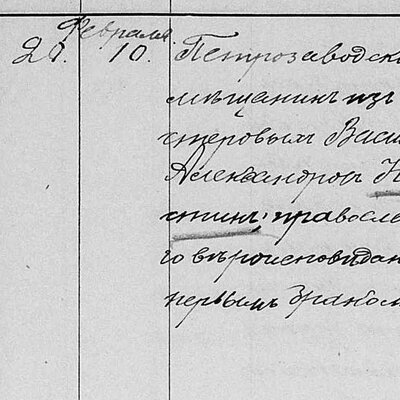 Февраля
20. 10. Петрозаводск
мѣщанинъ изъ
стеровыхъ Васи
Александровъ К
стинъ, правосла
го вѣроисповѣдан
первымъ бракомъ